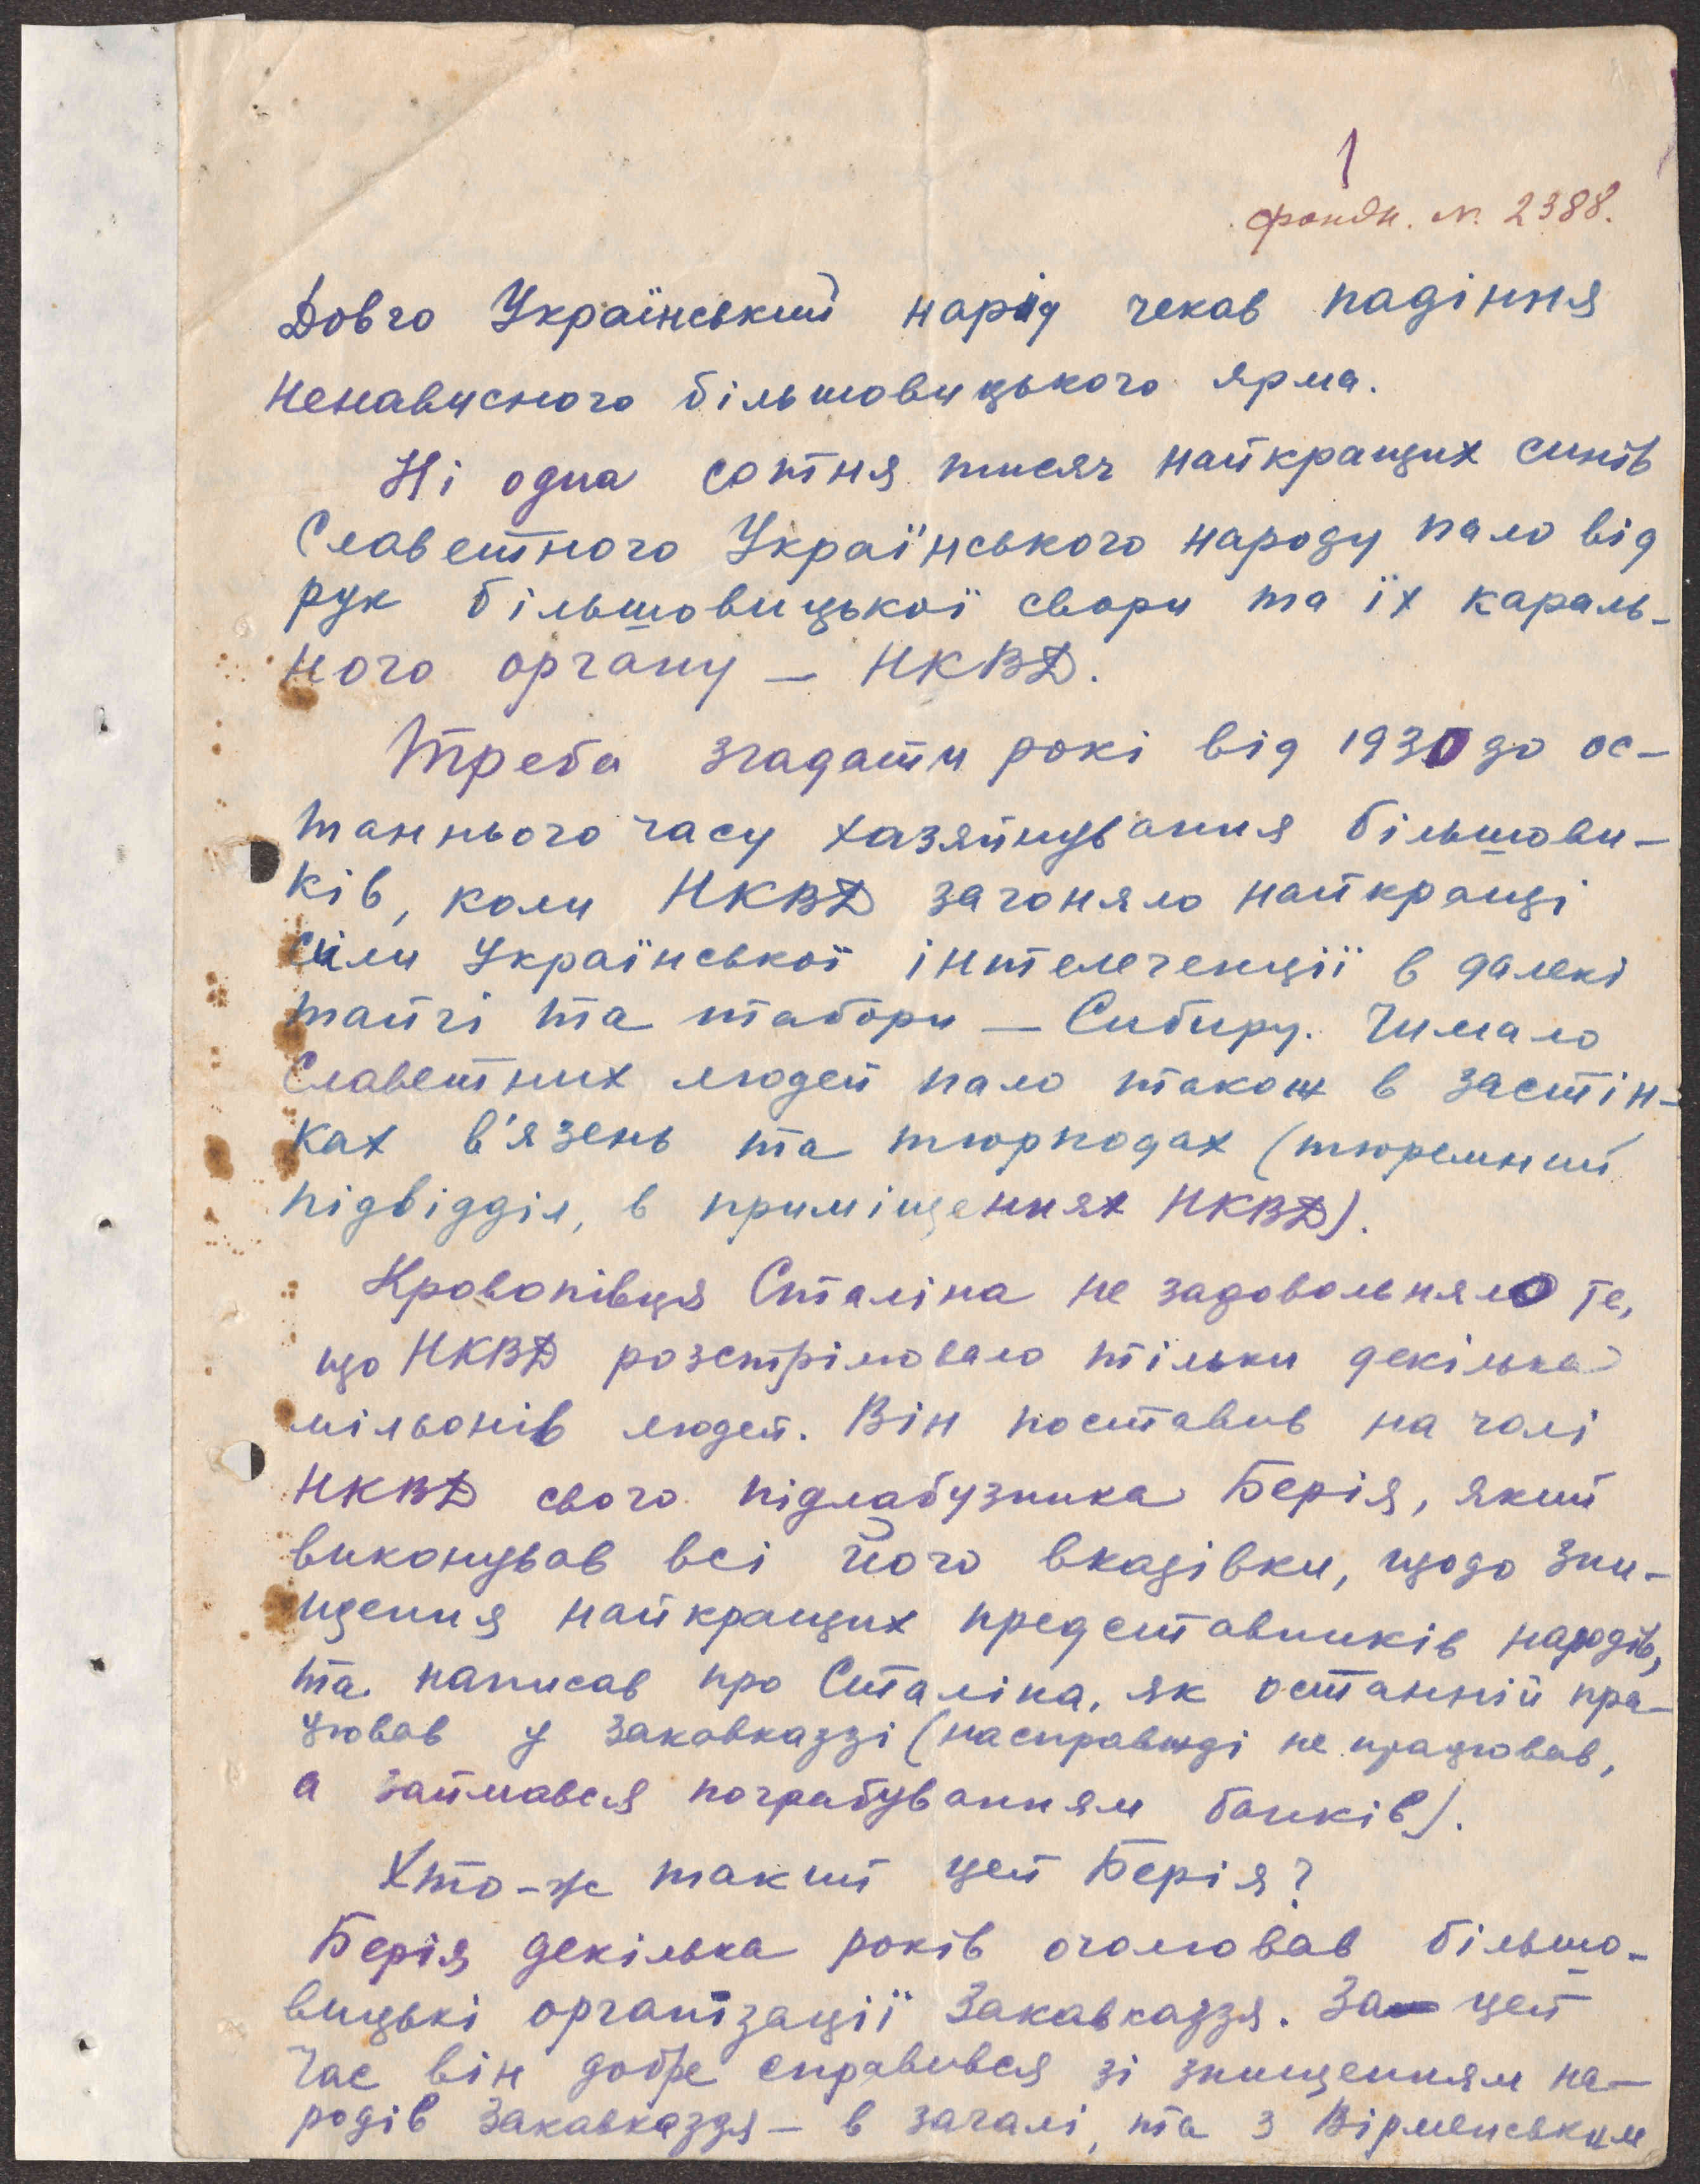 1
фондн. №. 2388.
Довго Український нарід чекав падіння
ненависного більшовицького ярма.
Ні одна сотня тисяч найкращих синів
Славетного Українського народу пало від
рук більшовицької свори та їх караль-
ного органу – НКВД.
Треба згадати рокі від 1930 до ос-
таннього часу хазяйнування більшови-
ків, коли НКВД загоняло найкращі
сили Української інтелегенції в далекі
тайгі та табори – Сибиру. Чимало
Славетних людей пало також в застін-
ках в'язень та тюрподах (тюремний
підвідділ, в приміщеннях НКВД).
Кровопівця Сталіна не задовольняло те,
що НКВД розстрілювало тільки декілька
мільонів людей. Він поставив на чолі
НКВД свого підлабузника Берія, який
виконував всі його вказівки, щодо зни-
щення найкращих представників народів,
та написав про Сталіна, як останній пра-
цював у Закавказзі (насправжді не працював,
а займався пограбуванням банків).
Хто-ж такий цей Берія?
Берія декілька років очолював більшо-
вицькі організації Закавказзя. За цей
час він добре справився зі знищенням на-
родів Закавказзя – в загалі, та з Вірменським